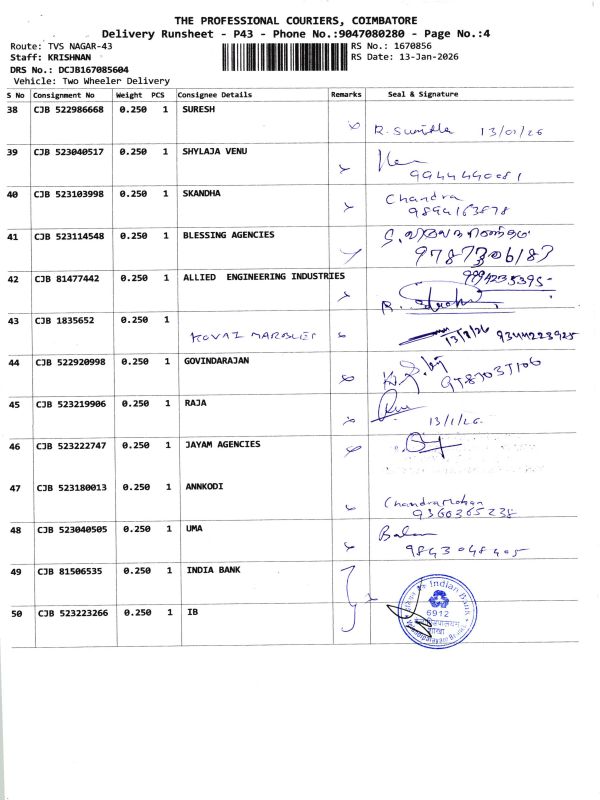 THE PROFESSIONAL COURIERS, COIMBATORE
Delivery Runsheet - P43 - Phone No.:9047080280 - Page No.:4
Route: TVS NAGAR-43 RS No.: 1670856
Staff: KRISHNAN RS Date: 13-Jan-2026
DRS No.: DCJB167085604
Vehicle: Two Wheeler Delivery
S No Consignment No Weight PCS Consignee Details Remarks Seal & Signature
38 CJB 522986668 0.250 1 SURESH
13/01/26
39 CJB 523040517 0.250 1 SHYLAJA VENU
9944440081
40 CJB 523103998 0.250 1 SKANDHA Chandra
9894163878
41 CJB 523114548 0.250 1 BLESSING AGENCIES
42 CJB 81477442 0.250 1 ALLIED ENGINEERING INDUSTRIES 9994235395
43 CJB 1835652 0.250 1
KOVAI MARBLES 9344223925
44 CJB 522920998 0.250 1 GOVINDARAJAN
45 CJB 523219906 0.250 1 RAJA
13/1/26.
46 CJB 523222747 0.250 1 JAYAM AGENCIES
47 CJB 523180013 0.250 1 ANNKODI
Chandramohan
9360365238
48 CJB 523040505 0.250 1 UMA
9843048405
49 CJB 81506535 0.250 1 INDIA BANK
Indian Bank
6912
50 CJB 523223266 0.250 1 IB
शाखा